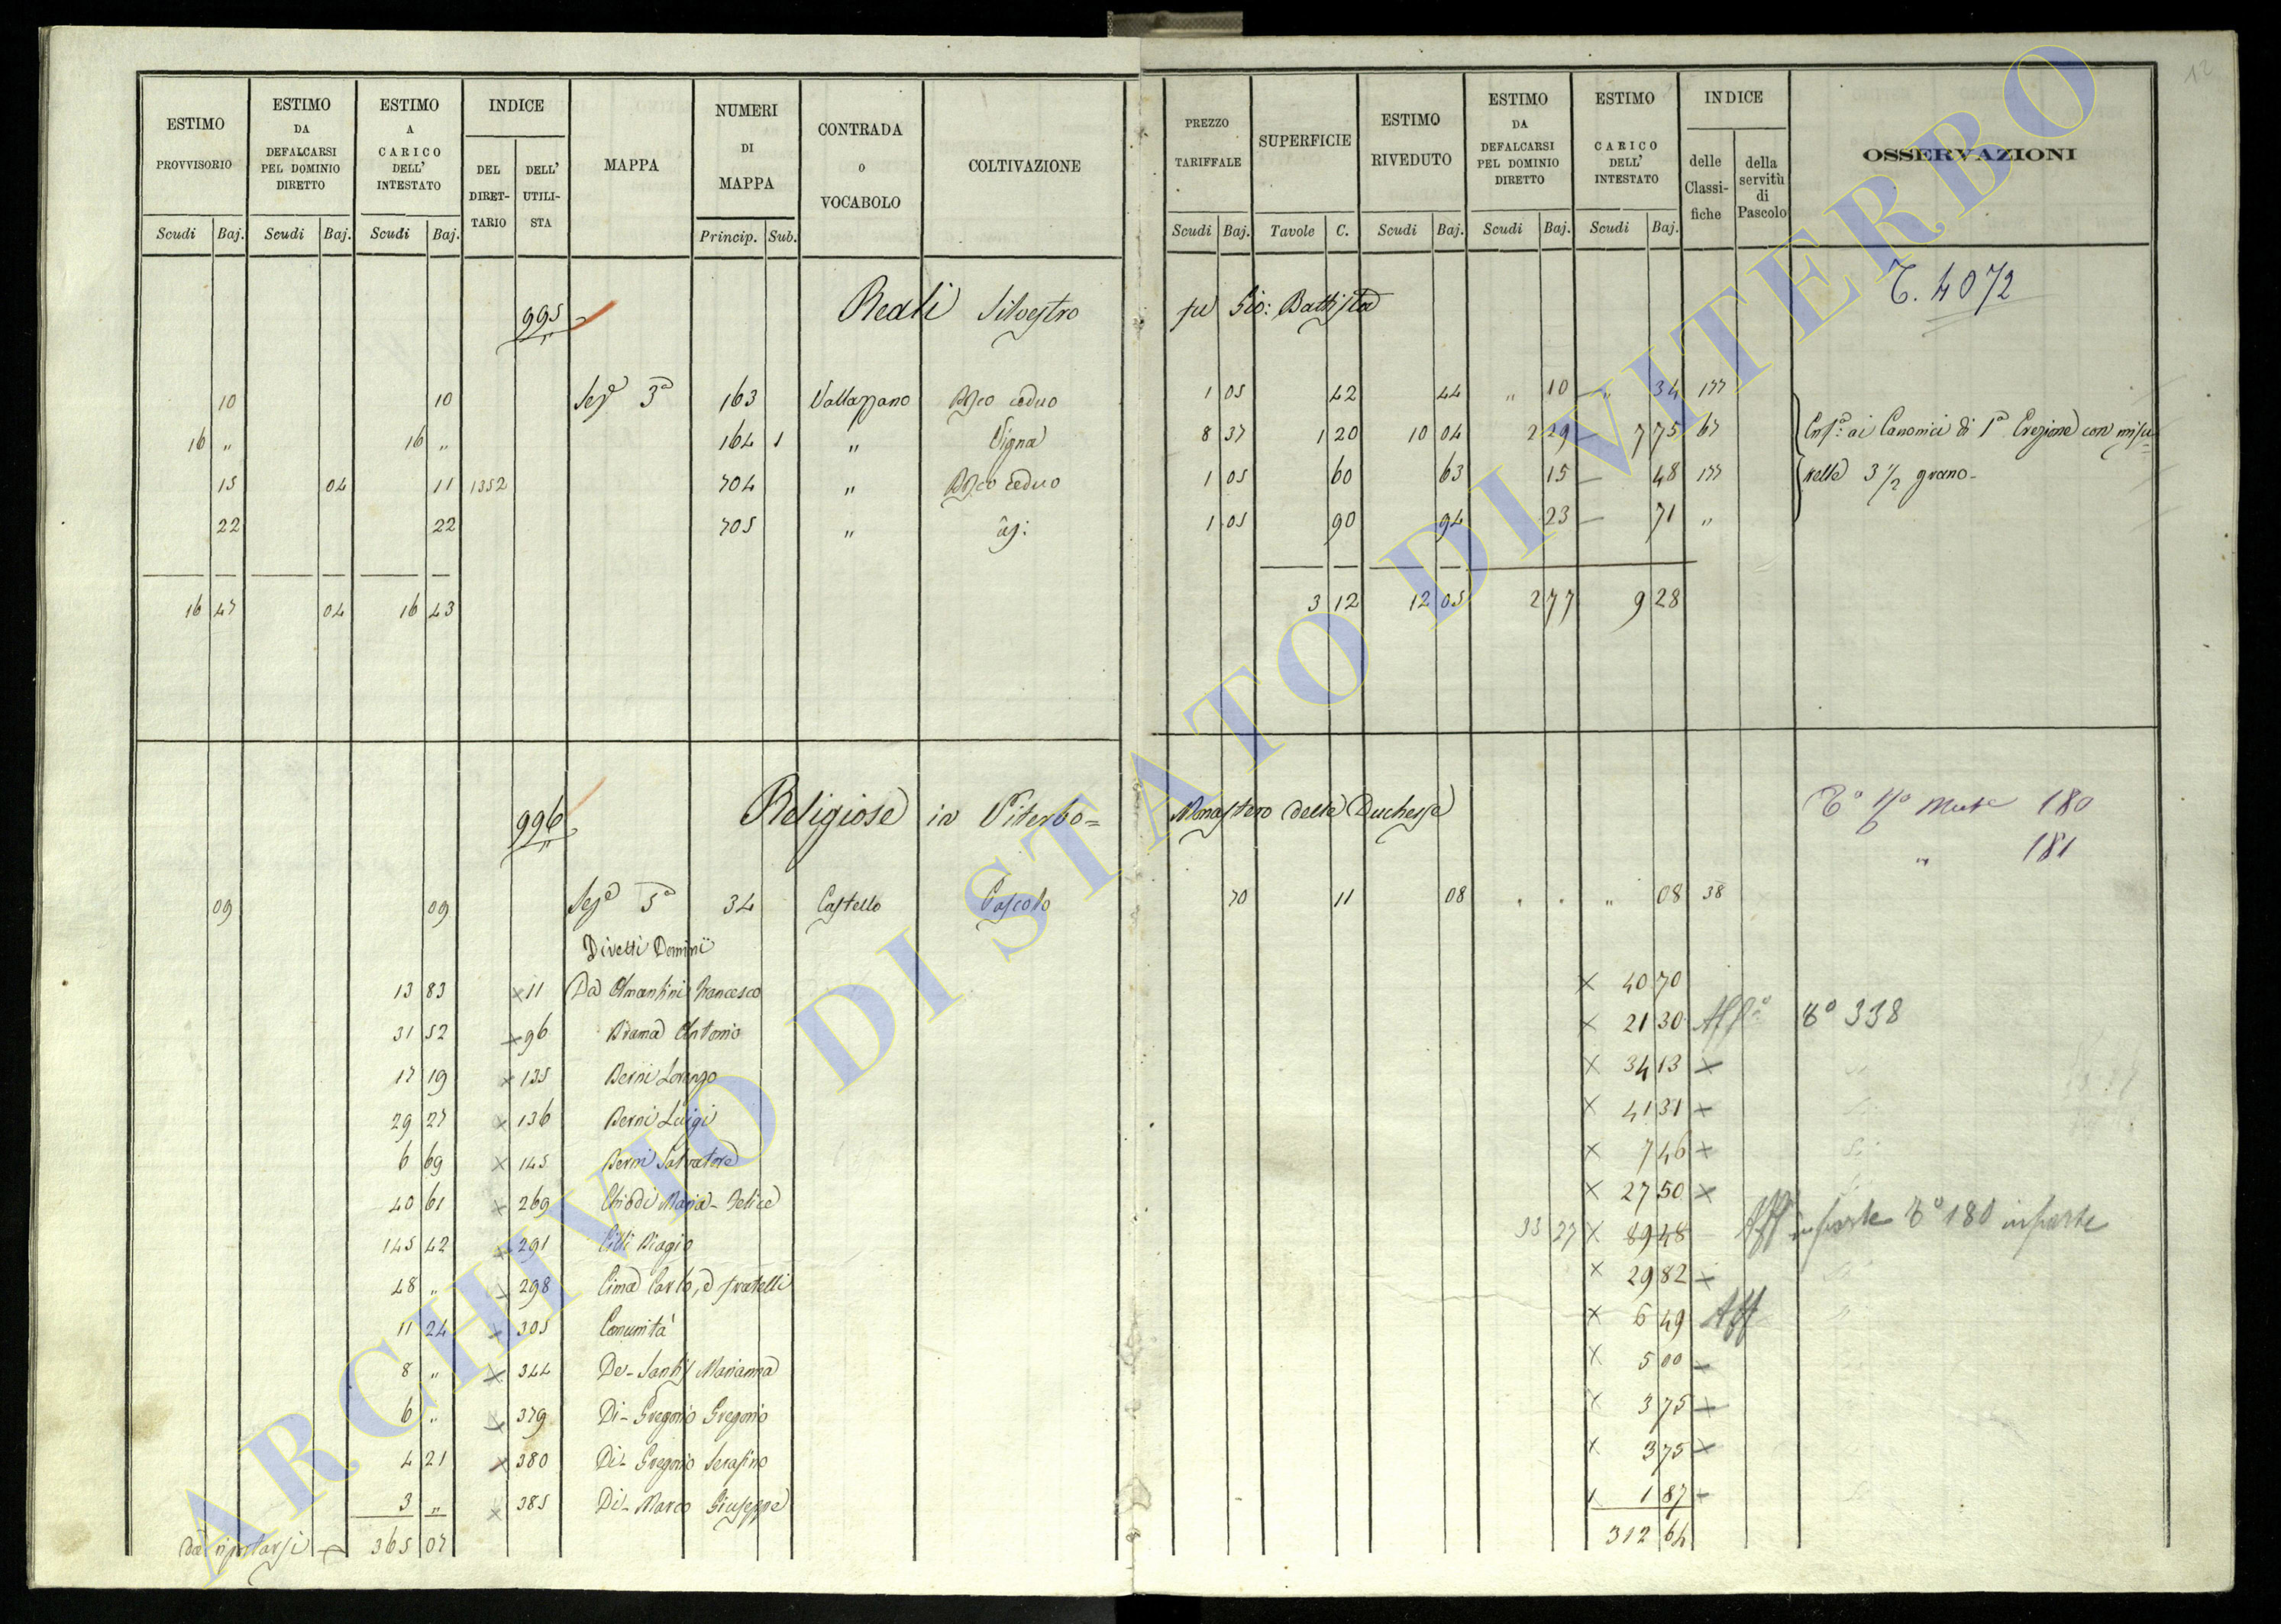 12
ESTIMO PROVVISORIO Scudi Baj. ESTIMO DA DEFALCARSI PEL DOMINIO DIRETTO Scudi Baj. ESTIMO A CARICO DELL' INTESTATO Scudi Baj. INDICE DEL DIRET-TARIO DELL' UTILI-STA MAPPA NUMERI DI MAPPA Princip. Sub. CONTRADA o VOCABOLO COLTIVAZIONE PREZZO TARIFFALE Scudi Baj. SUPERFICIE Tavole C. ESTIMO RIVEDUTO Scudi Baj. ESTIMO DA DEFALCARSI PEL DOMINIO DIRETTO Scudi Baj. ESTIMO CARICO DELL' INTESTATO Scudi Baj. INDICE delle Classi-fiche della servitù di Pascolo OSSERVAZIONI
995 Reali Silvestro fu Gio: Battista T. 4072
10 10 Seze 3a 163 Vallazzano Bosco ceduo 1 05 42 44 " 10 " 34 177
16 " 16 " 164 1 " Vigna 8 37 1 20 10 04 2 29 7 75 67 Enfa: ai Canonici di 1a Erezione con misu=
15 04 11 1352 704 " Bosco ceduo 1 05 60 63 15 48 177 relle 3 1/2 grano
22 22 705 " 1 05 90 94 23 71 "
16 47 04 16 43 3 12 12 05 2 77 9 28
996 Religiose in Viterbo= Monastero della Duchessa To 180
" 181
09 09 Seze 3a 34 Castello Pascolo 70 11 08 " 08 38
Diretti Dominii
13 83 × 11 Da Amantini Francesco × 40 70
31 52 × 96 Brama Antonio × 21 30 Affo To 338
17 19 × 135 Berni Lorenzo × 34 13 ×
29 27 × 136 Berni Luigi × 41 31 ×
6 69 × 145 Berni Salvatore × 7 46 ×
40 61 × 269 Chiodi Maria-Felice × 27 50 ×
145 42 × 291 Cilli Biagio 33 27 × 89 48 Aff in parte To 180 in parte
48 " × 298 Cima Carlo, e fratelli × 29 82 ×
11 24 × 305 Comunità × 6 49 Aff
8 " × 344 De-Santis Marianna × 5 00 ×
6 " × 379 Di-Gregorio Gregorio × 3 75 ×
4 21 × 380 Di-Gregorio Serafino × 3 75 ×
3 " × 385 Di-Marco Giuseppe × 1 87
da riportarsi 365 07 312 64
ARCHIVIO DI STATO DI VITERBO